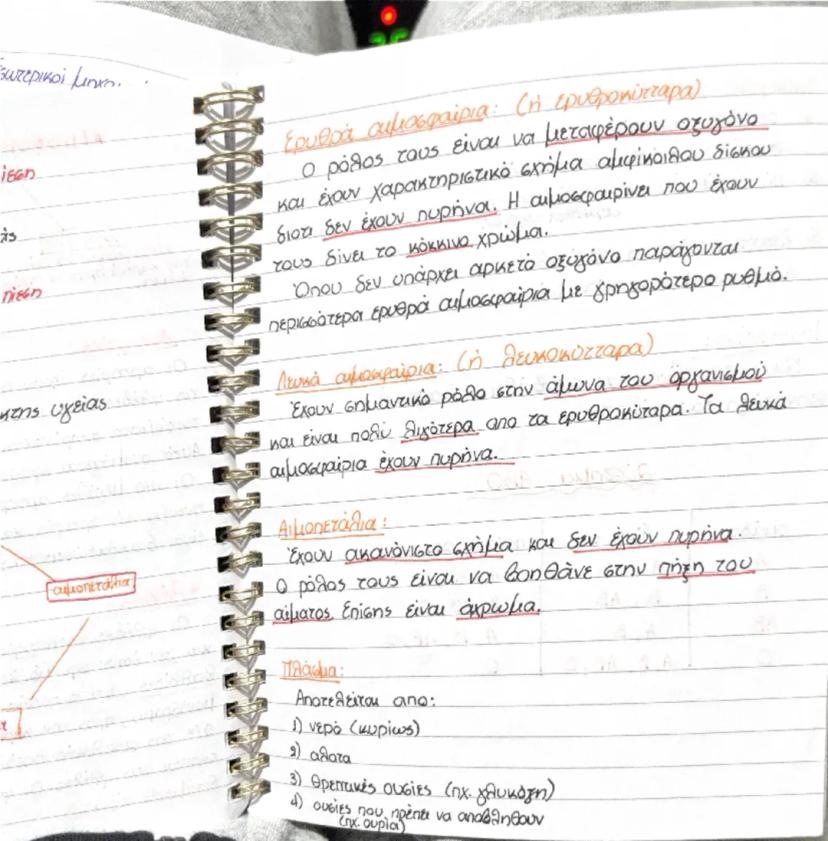 εξωτερικοί μηχ.
πίεση
πίεση
κτης υγείας
αιμοπετάλια
Ερυθρά αιμοσφαίρια: (ή ερυθροκύτταρα)
Ο ρόλος τους είναι να μεταφέρουν οξυγόνο
και έχουν χαρακτηριστικό σχήμα αμφίκοιλου δίσκου
διοτι δεν έχουν πυρήνα. Η αιμοσφαιρίνει που έχουν
τους δίνει το κόκκινο χρώμα.
Όπου δεν υπάρχει αρκετό οξυγόνο παράγονται
περισσότερα ερυθρά αιμοσφαίρια με γρηγορότερο ρυθμό.
Λευκά αιμοσφαίρια: (ή λευκοκύτταρα)
Έχουν σημαντικό ρόλο στην άμυνα του οργανισμού
και είναι πολύ λιγότερα απο τα ερυθροκύταρα. Τα λευκά
αιμοσφαίρια έχουν πυρήνα.
Αιμοπετάλια:
Έχουν ακανόνιστο σχήμα και δεν έχουν πυρήνα.
Ο ρόλος τους είναι να βοηθάνε στην πήξη του
αίματος. Επίσης είναι άχρωμα.
Πλάσμα:
Αποτελείται απο:
1) νερό (κυρίως)
2) αλατα
3) θρεπτικές ουσίες (πχ. γλυκόζη)
4) ουσίες που πρέπει να αποβληθούν
(πχ. ουρία)